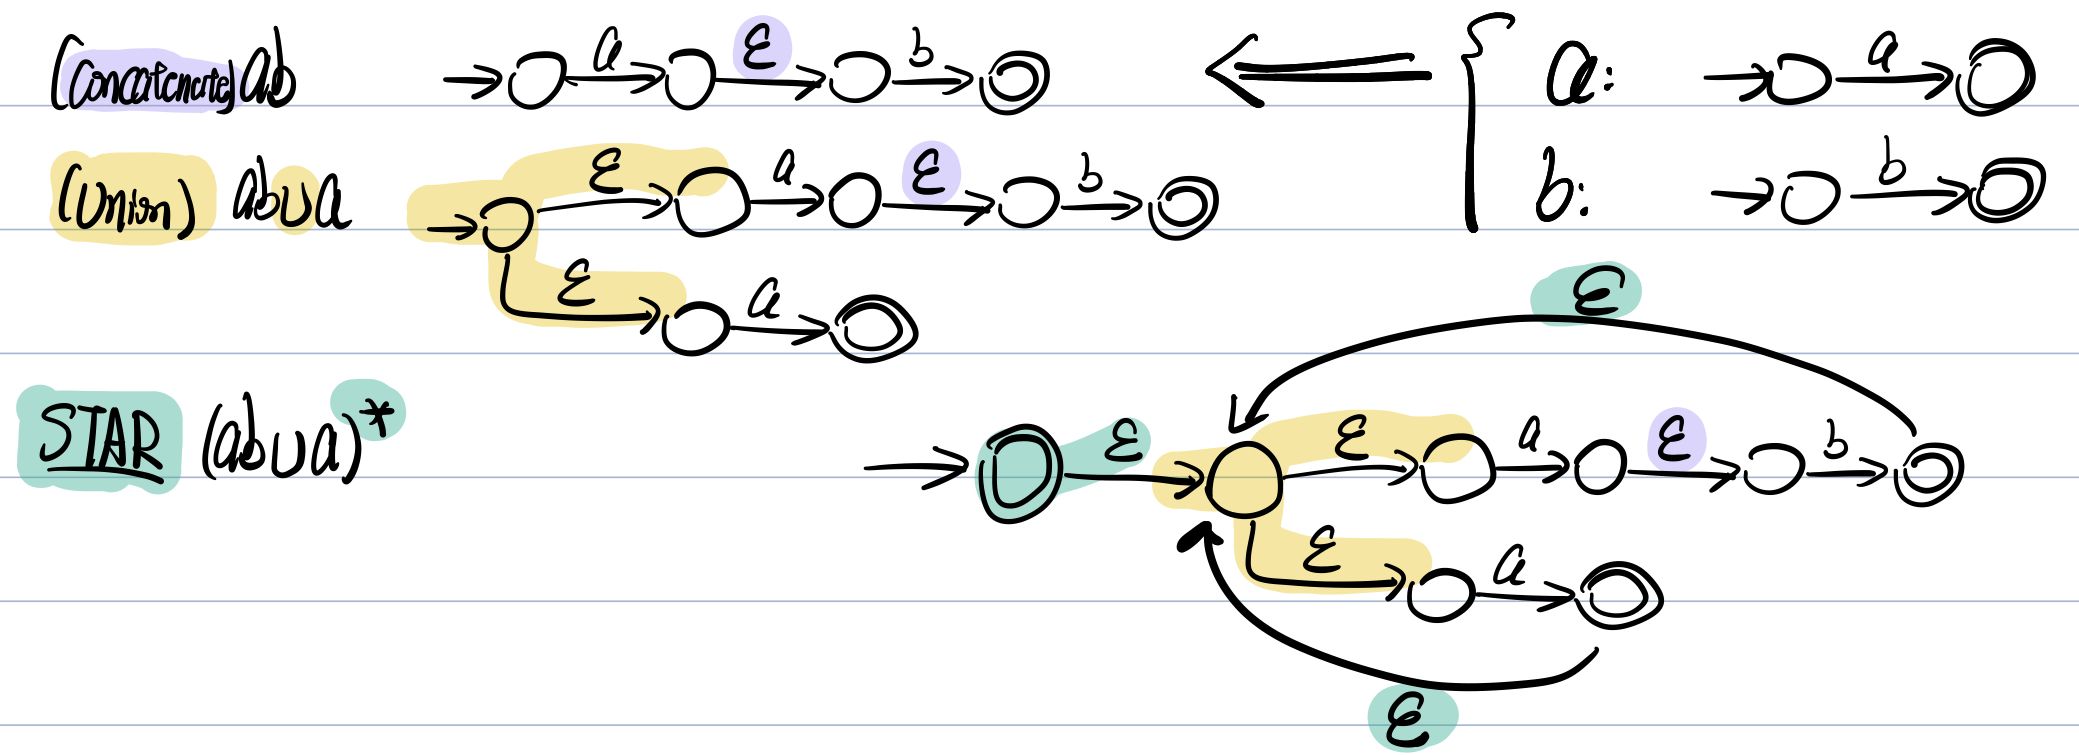 (concatenate) ab a ε b a: a
b: b
(Union) ab∪a ε a ε b
ε a
ε
STAR (ab∪a)* ε ε a ε b
ε a
ε